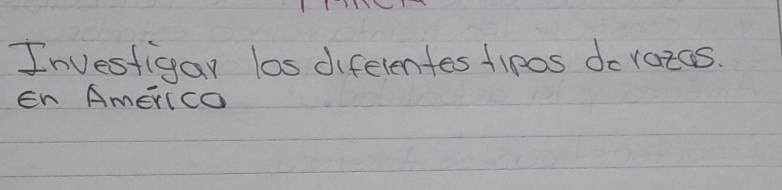 Investigar los diferentes tipos de razas.
En América